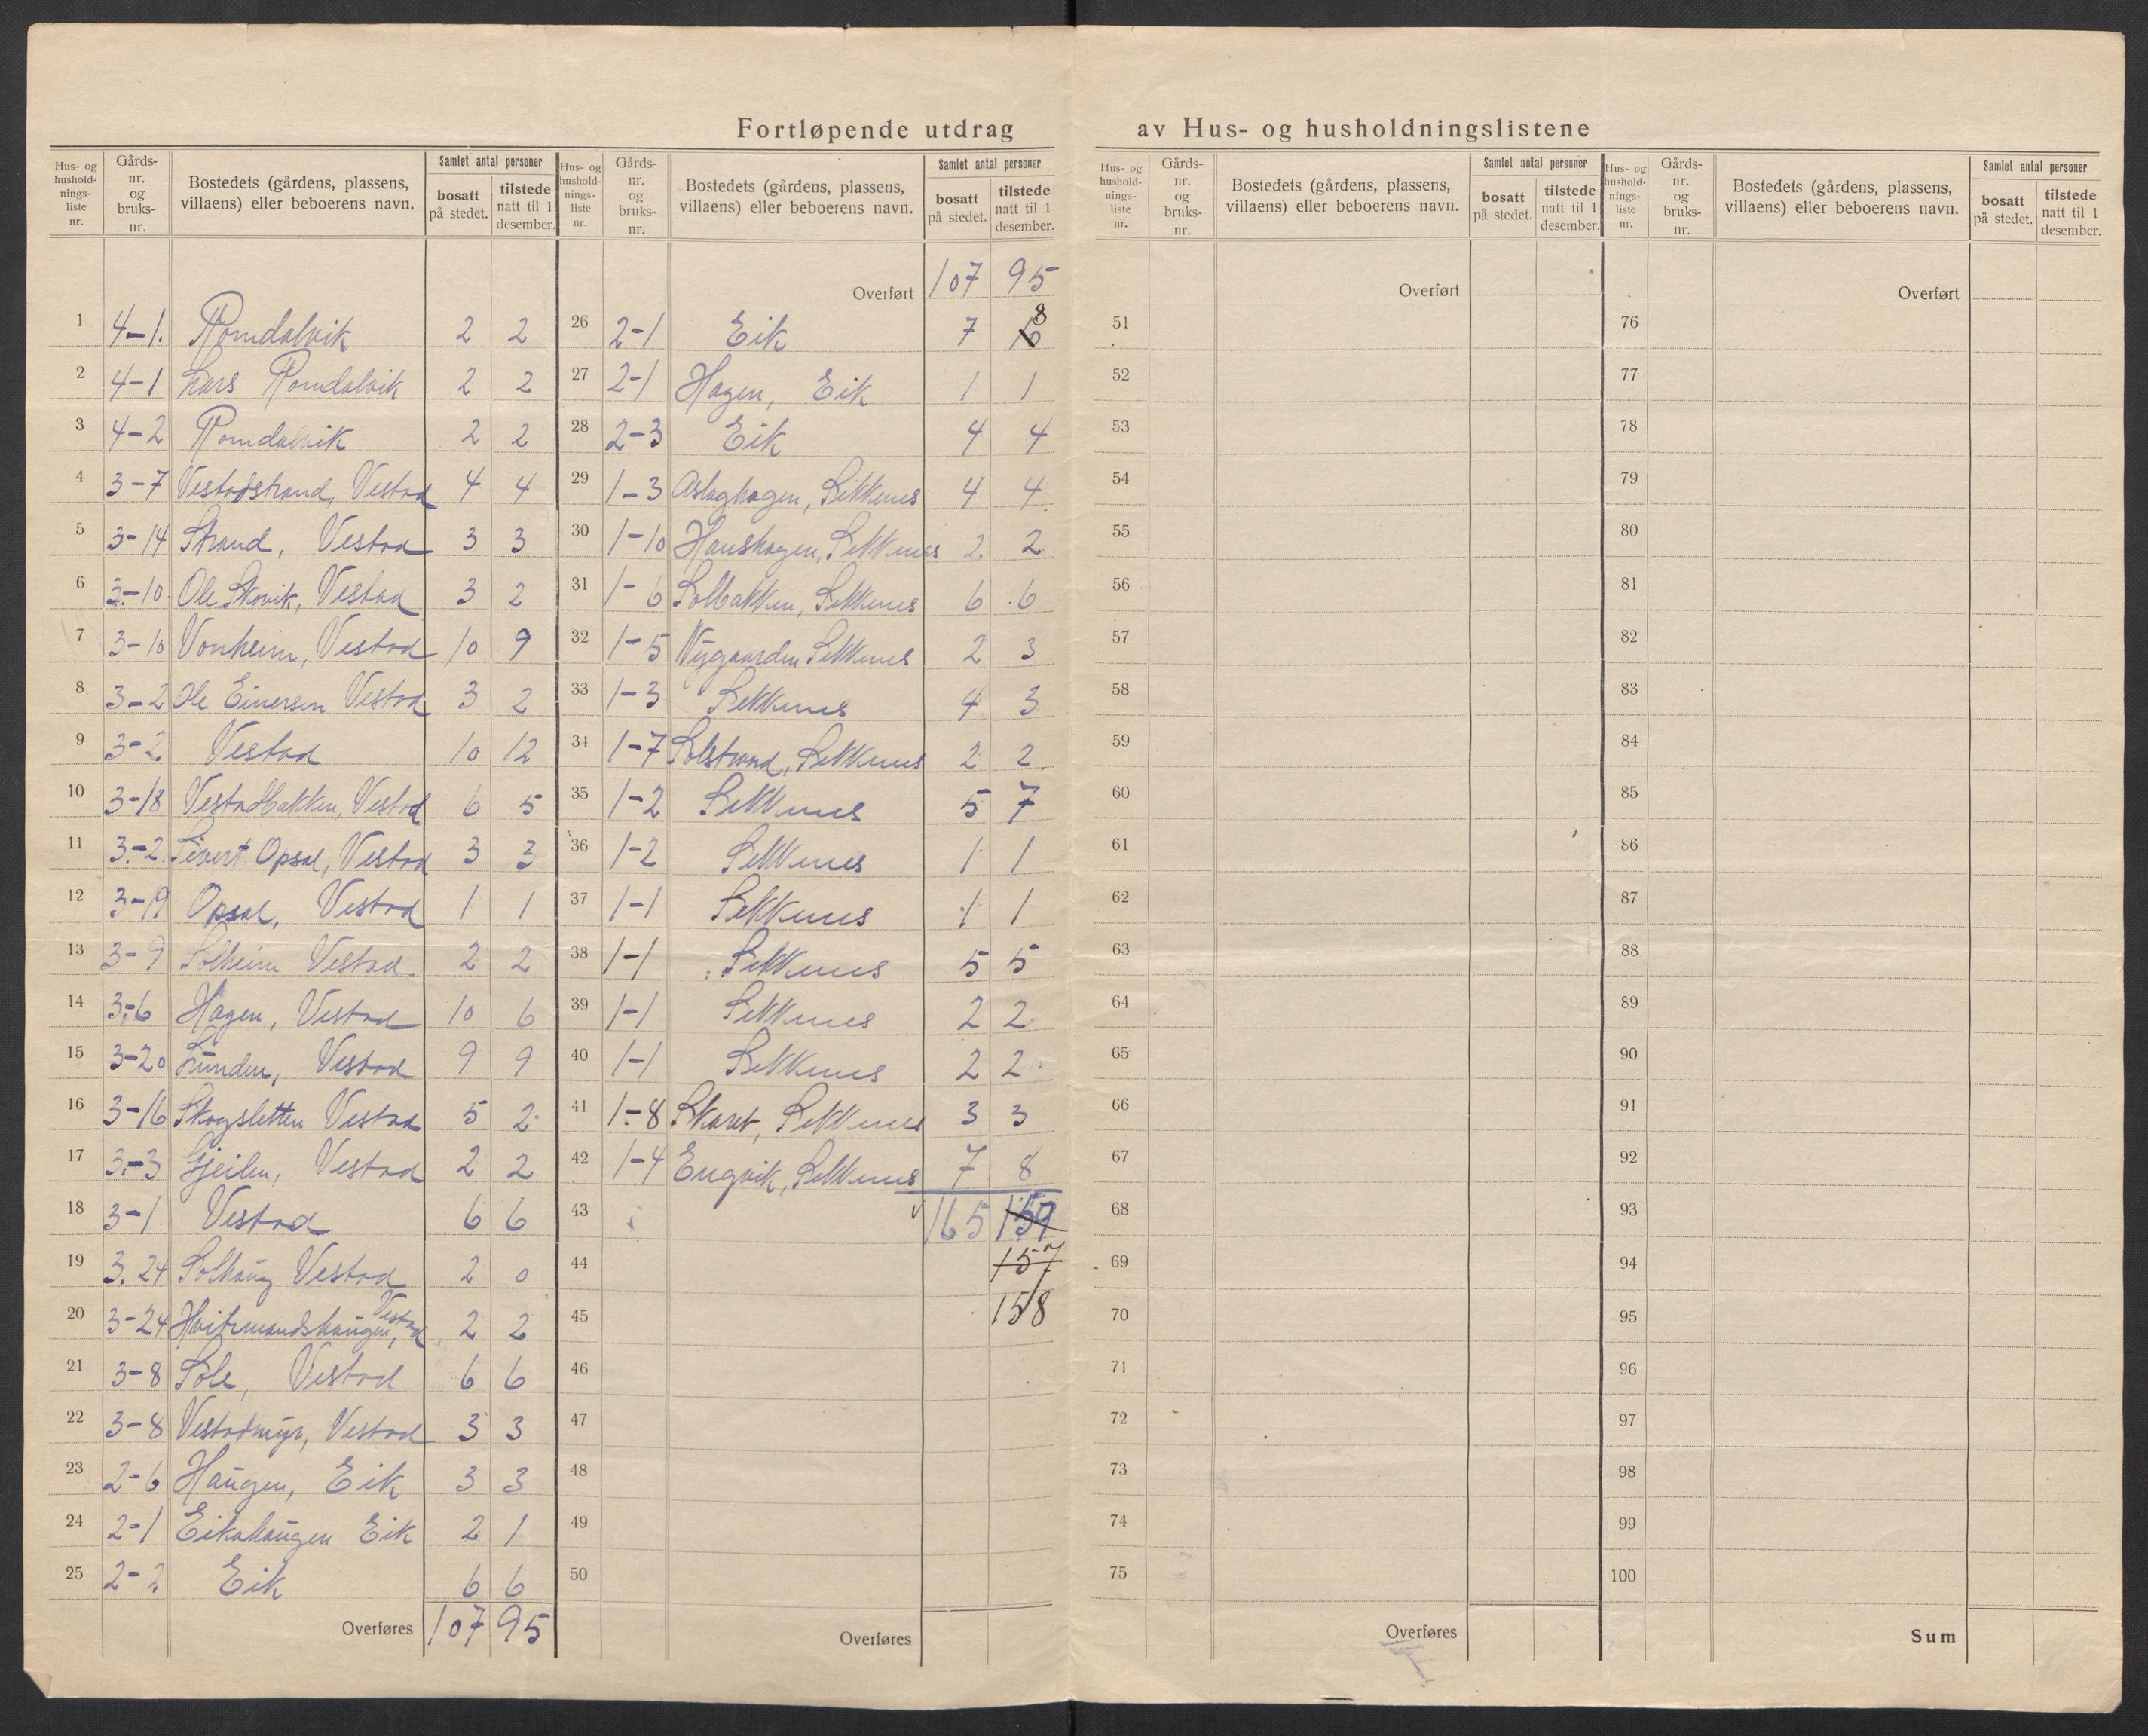 Fortløpende utdrag av Hus- og husholdningslistene
Hus- og husholdnings-liste nr. Gårds-nr. og bruks-nr. Bostedets (gårdens, plassens, villaens) eller beboerens navn. Samlet antal personer bosatt på stedet. tilstede natt til 1 desember.
1 4-1. Romdalvik 2 2
2 4-1 Lars Romdalvik 2 2
3 4-2 Romdalvik 2 2
4 3-7 Vestadstrand, Vestad 4 4
5 3-14 Strand, Vestad 3 3
6 3-10 Ole Skovik, Vestad 3 2
7 3-10 Vonheim, Vestad 10 9
8 3-2 Ole Einersen Vestad 3 2
9 3-2 Vestad 10 12
10 3-18 Vestadbakken, Vestad 6 5
11 3-2 Sivert Opsal, Vestad 3 3
12 3-19 Opsal, Vestad 1 1
13 3-9 Solheim Vestad 2 2
14 3-6 Hagen, Vestad 10 6
15 3-20 Lunden, Vestad 9 9
16 3-16 Skogsletten Vestad 5 2
17 3-3 Gjeilen, Vestad 2 2
18 3-1 Vestad 6 6
19 3.24 Solhaug Vestad 2 0
20 3-24 Hvitmandshaugen, Vestad 2 2
21 3-8 Sole, Vestad 6 6
22 3-8 Vestadmyr, Vestad 3 3
23 2-6 Haugen, Eik 3 3
24 2-1 Eikahaugen Eik 2 1
25 2-2 Eik 6 6
Overføres 107 95
Hus- og husholdnings-liste nr. Gårds-nr. og bruks-nr. Bostedets (gårdens, plassens, villaens) eller beboerens navn. Samlet antal personer bosatt på stedet. tilstede natt til 1 desember.
Overført 107 95
26 2-1 Eik 7 8
27 2-1 Hagen, Eik 1 1
28 2-3 Eik 4 4
29 1-3 Aslaghagen, Sekkenes 4 4
30 1-10 Hanshagen, Sekkenes 2 2
31 1-6 Solbakken, Sekkenes 6 6
32 1-5 Nygaarden Sekkenes 2 3
33 1-3 Sekkenes 4 3
34 1-7 Solstrand, Sekkenes 2 2
35 1-2 Sekkenes 5 7
36 1-2 Sekkenes 1 1
37 1-1 Sekkenes 1 1
38 1-1 Sekkenes 5 5
39 1-1 Sekkenes 2 2
40 1-1 Sekkenes 2 2
41 1-8 Skaret, Sekkenes 3 3
42 1-4 Engvik, Sekkenes 7 8
43 165 159
44 157
45 158
46
47
48
49
50
Overføres
Hus- og husholdnings-liste nr. Gårds-nr. og bruks-nr. Bostedets (gårdens, plassens, villaens) eller beboerens navn. Samlet antal personer bosatt på stedet. tilstede natt til 1 desember.
Overført
51
52
53
54
55
56
57
58
59
60
61
62
63
64
65
66
67
68
69
70
71
72
73
74
75
Overføres
Hus- og husholdnings-liste nr. Gårds-nr. og bruks-nr. Bostedets (gårdens, plassens, villaens) eller beboerens navn. Samlet antal personer bosatt på stedet. tilstede natt til 1 desember.
Overført
76
77
78
79
80
81
82
83
84
85
86
87
88
89
90
91
92
93
94
95
96
97
98
99
100
Sum